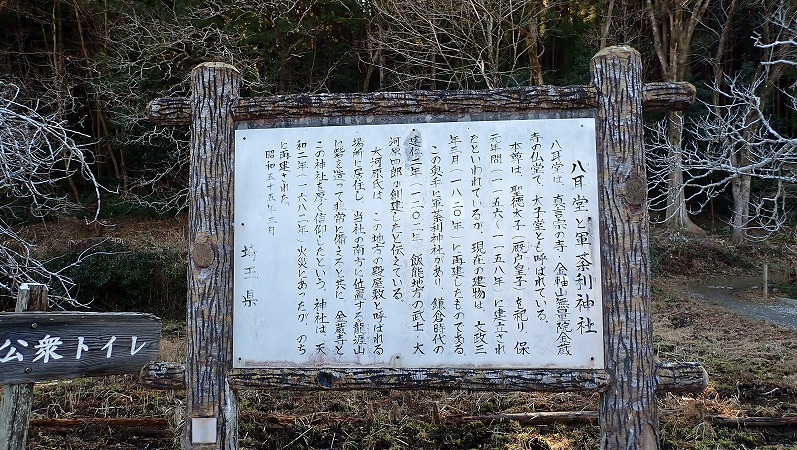 八耳堂と軍荼利神社
八耳堂は、真言宗の寺、金軸山無量院金蔵
寺の仏堂で、太子堂とも呼ばれている。
本尊は、聖徳太子（厩戸皇子）を祀り、保
元年間（一一五六〜一一五八年）に建立され
たといわれているが、現在の建物は、文政三
年三月（一八二〇年）に再建したものである。
この奥手に軍荼利神社があり、鎌倉時代の
建仁二年（一二〇二年）飯能地方の武士・大
河原四郎が創建したと伝えている。
大河原氏は、この地方の殿屋敷と呼ばれる
場所に居住し、当社の南方に位置する龍涯山
に砦を造って非常に備えると共に、金蔵寺と
この神社を厚く信仰したという。神社は、天
和二年（一六八二年）火災にあったが、のち
に再建された。
昭和五十五年三月
埼玉県
公衆トイレ